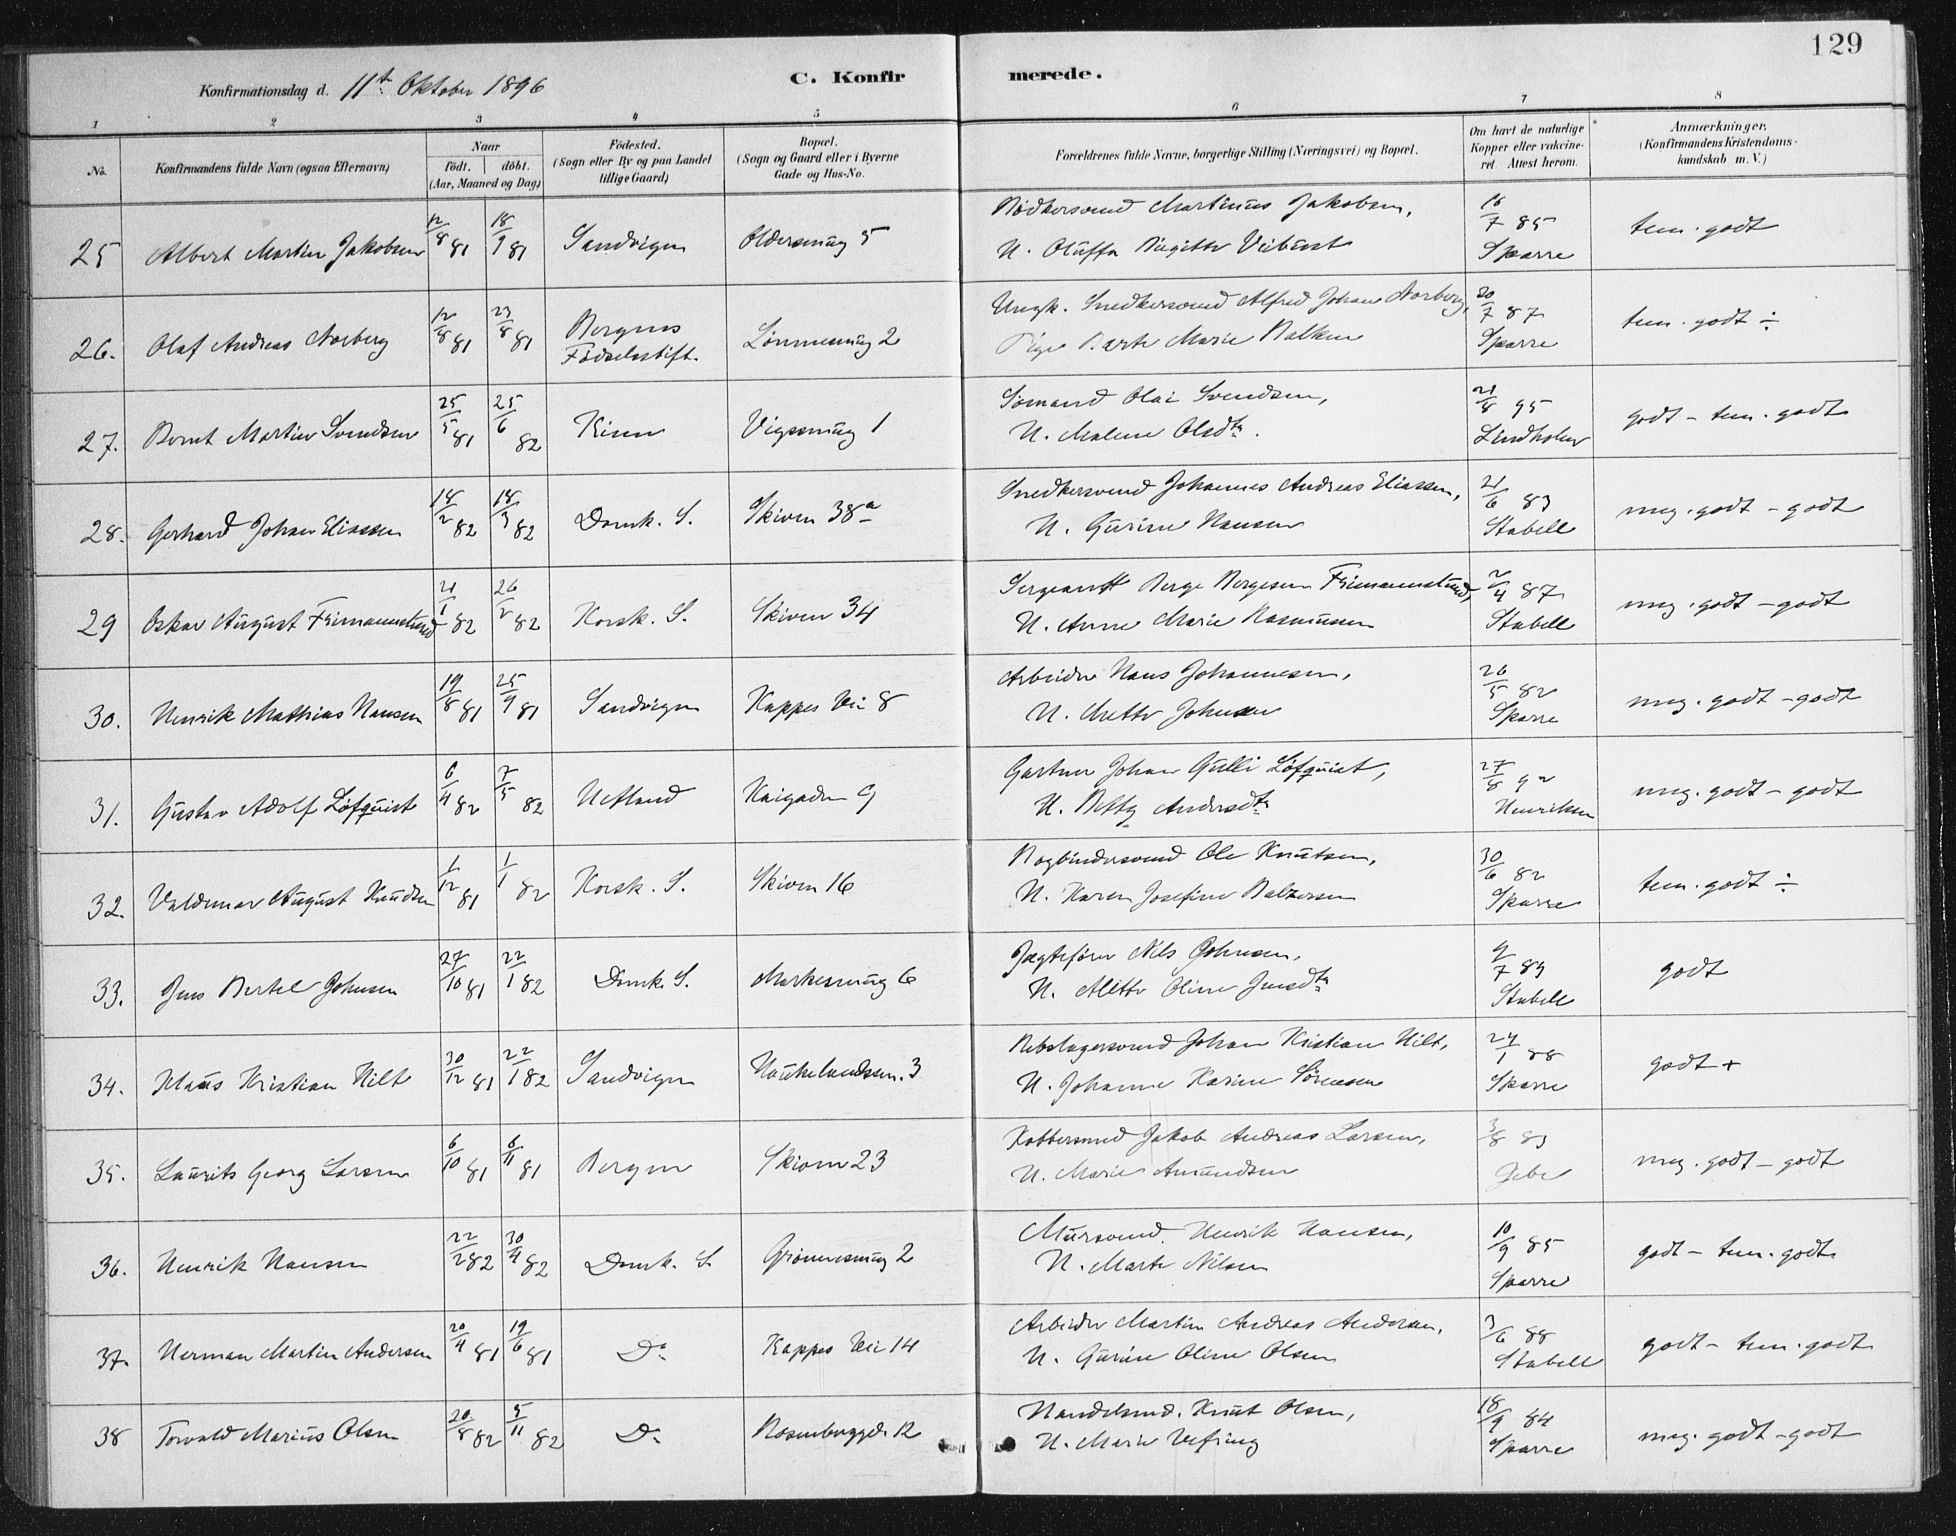 129
Konfirmationsdag d. 11te Oktober 1896
C. Konfirmerede.
1 2 3 4 5 6 7 8
No.
Konfirmandens fulde Navn (ogsaa Efternavn)
Naar
födt. döbt.
(Aar, Maaned og Dag)
Födested.
(Sogn eller By og paa Landet
tillige Gaard)
Bopæl.
(Sogn og Gaard eller i Byerne
Gade og Hus-No.
Forældrenes fulde Navne, borgerlige Stilling (Næringsvei) og Bopæl.
Om havt de naturlige
Kopper eller vakcine-
ret Attest herom.
Anmærkninger.
(Konfirmandens Kristendoms-
kundskab m. V.)
25 Albert Martin Jakobsen 12/8 81 18/9 81 Sandvigen Oldersmug 5
Bödkersvend Martinus Jakobsen, H. Oluffa Birgitte
16/7 85 Sparre tem. godt
26. Olaf Andreas Norberg 12/8 81 23/8 81 Bergens Födselsstift. Lönnesmug 2
Ungk. Snedkersvend Alfred Johan Norberg, Pige Berte Marie Balken
20/7 87 Sparre tem. godt ÷
27. Bernt Martin Svendsen 25/5 81 25/6 82 Kinn Vigesmug 1
Sömand Olai Svendsen, H. Malene Olsdtr.
21/8 95 Lindholm godt - tem. godt
28. Gerhard Johan Eliassen 18/2 82 18/3 82 Domk. S. Skiven 38a
Snedkersvend Johannes Andreas Eliassen, H. Gurine Hansen
21/6 83 Stabell meg. godt - godt
29 Oskar August Frimannslund 21/1 82 26/2 82 Korsk. S. Skiven 34
Sergeant Berge Borgesen Frimannslund, H. Anne Marie Rasmussen
2/4 87 Stabell meg. godt - godt
30. Henrik Mathias Hansen 19/8 81 25/9 81 Sandvigen Kappes Vei 8
Arbeider Hans Johannesen, H. Mette Johnsen
26/5 82 Sparre meg. godt - godt
31. Gustav Adolf Löfquist 6/4 82 7/5 82 Utland Kaigaden 9
Gartner Johan Gulli Löfquist, H. Betty Andersdtr
27/8 92 Henriksen meg. godt - godt
32. Valdemar August Knudsen 1/12 81 1/1 82 Korsk. S. Skiven 16
Bogbindersvend Ole Knutsen, H. Karen Josefine Baltzersen
30/6 82 Sparre tem. godt ÷
33. Jens Bertel Johnsen 27/10 81 22/1 82 Domk. S. Markesmug 6
Jagtefører Nils Johnsen, H. Alette Oline Jensdtr
9/7 89 Stabell godt
34. Klaus Kristian Hilt 30/12 81 22/1 82 Sandvigen Haukelandssm. 3
Rebslagersvend Johan Kristian Hilt, H. Johanne Karine Sörensen
24/1 88 Sparre godt +
35. Laurits Georg Larsen 6/10 81 6/11 81 Bergen Skiven 23
Kobbersmed Jakob Andreas Larsen, H. Marie Amundsen
3/8 83 Jebe meg. godt - godt
36. Henrik Hansen 22/2 82 30/4 82 Domk. S. Grönnesmug 2
Mursvend. Henrik Hansen, H. Marte Nilsen
10/9 85 Sparre godt - tem. godt
37. Herman Martin Andersen 20/4 81 19/6 81 Do Kappes Vei 14
Arbeider Martin Andreas Andersen, H. Gurine Oline Olsen
3/6 88 Stabell godt - tem. godt
38 Torvald Marius Olsen 20/8 82 5/11 82 Do Rosenberggd. 12
Handelsmd. Knut Olsen, H. Marie Vefring
18/9 84 Sparre meg. godt - godt